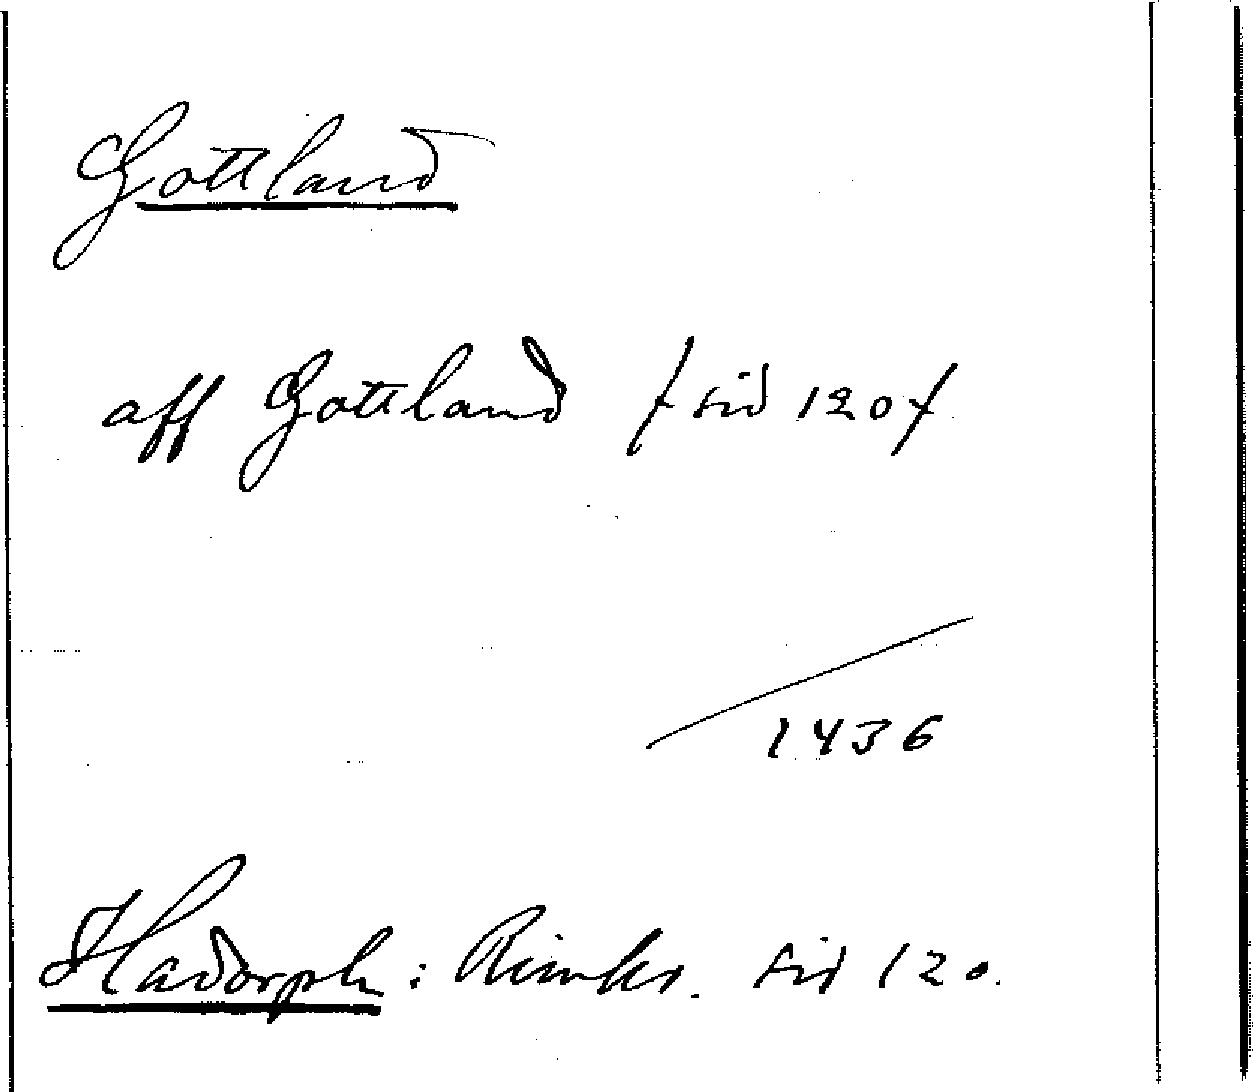 Gottland
aff Gottland / sid 120 /
1436
Hadorph: Rimkr. sid 120.